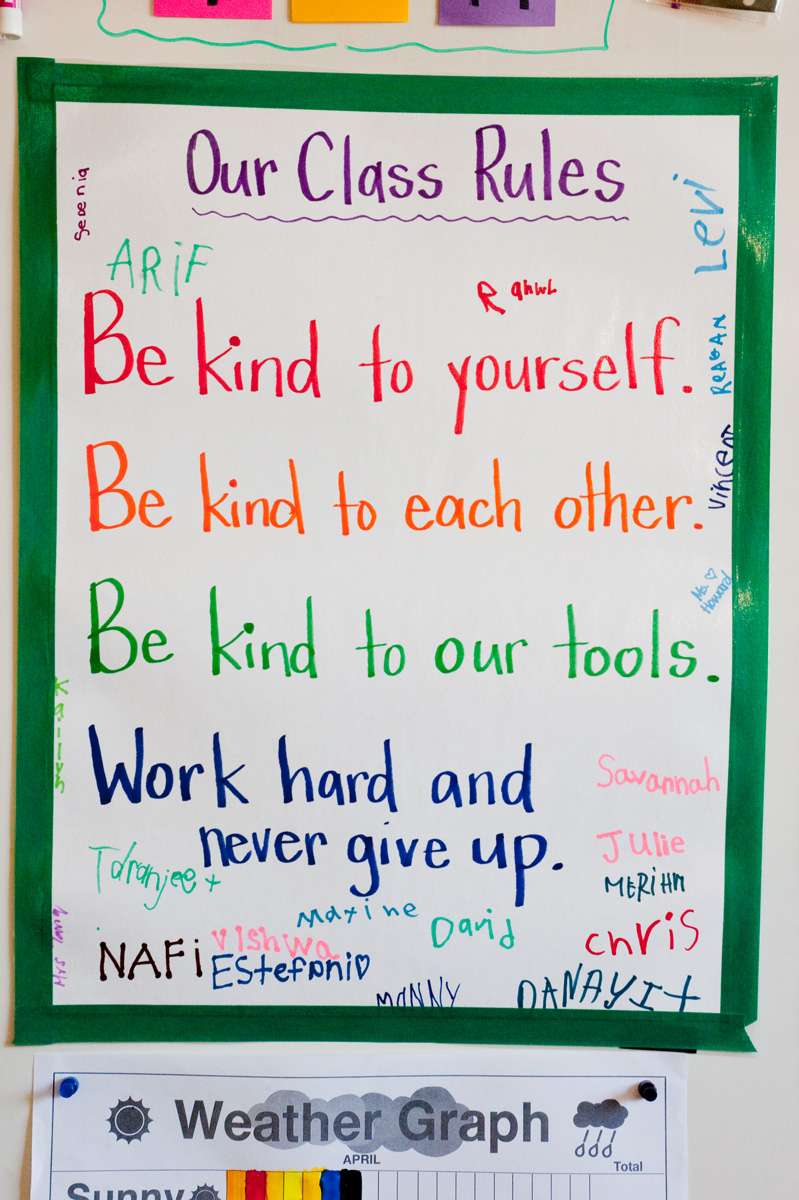 Our Class Rules
Levi
ARiF
Rahul
Be kind to yourself.
REAGAN
Vincent
Be kind to each other.
Ms. ♡
Howard
Be kind to our tools.
Work hard and
never give up.
Savannah
Julie
Taranjeet
MERiHM
Maxine
David
chris
NAFi
Vishwa
EStefani
Mrs Tang
MaNNY
DANAYIt
Weather Graph
APRIL
Total
Sunny